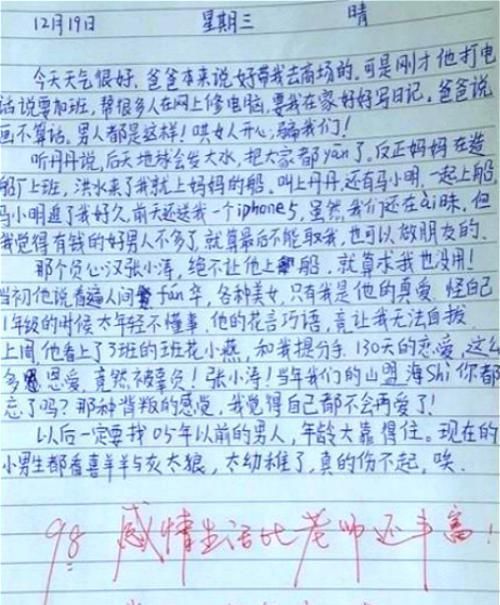 12月19日 星期三 晴
今天天气很好,爸爸本来说好带我去商场的,可是刚才他打电
话说要加班,帮很多人在网上修电脑,要我在家好好写日记。爸爸说
画不算话。男人都是这样!哄女人开心,骗我们!
听丹丹说,后天地球会发大水,把大家都yān了。反正妈妈在造
船厂上班,洪水来了我就上妈妈的船。叫上丹丹,还有马小明,一起上船,
马小明追了我好久,前天还送我一个iphone5,虽然我们还在ài昧,但
我觉得有钱的好男人不多了,就算最后不能取我,也可以做朋友的。
那个负心汉张小涛,绝不让他上船,就算求我也没用!
当初他说看遍人间fán华,各种美女,只有我是他的真爱,怪自己
1年级的时候太年轻不懂事,他的花言巧语,竟让我无法自拔
上周,他看上了3班的班花小燕,和我提分手,130天的恋爱,这么
多恩爱,竟然被辜负!张小涛!当年我们的山盟海Shi你都
忘了吗?那种背叛的感觉,我觉得自己都不会再爱了!
以后一定要找05年以前的男人,年龄大靠得住。现在的
小男生都看喜羊羊与灰太狼,太幼稚了,真的伤不起,唉.
98 感情生活比老师还丰富!